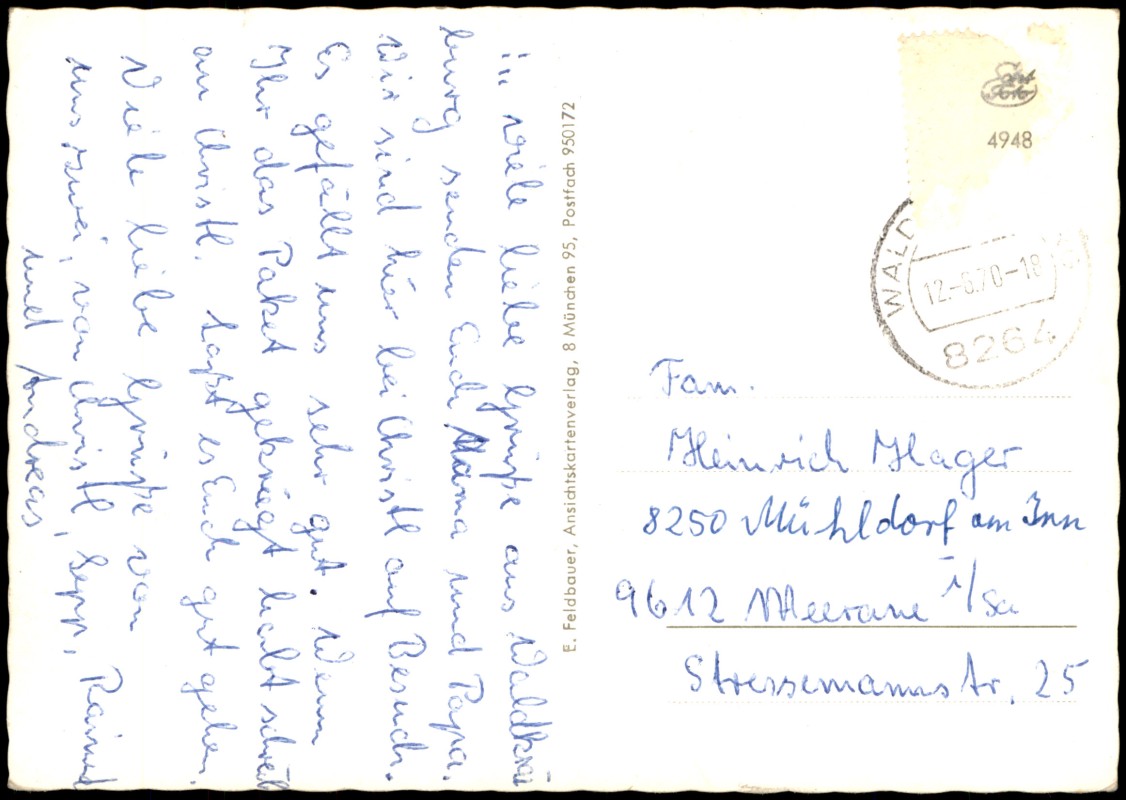 in viele liebe Grüße aus Waldkrai
burg senden Euch Mama und Papa.
Wir sind hier bei Christl auf Besuch.
Es gefällt uns sehr gut. Wenn
Ihr das Paket gekriegt habt schreibt
an Christl. Laßt es Euch gut gehen.
Viele liebe Grüße von
uns zwei, von Christl, Sepp, Raimund
und Andreas
E. Feldbauer, Ansichtskartenverlag, 8 München 95, Postfach 950172
4948
WALD
12.-8.70-18
8264
Fam.
Heinrich Hager
8250 Mühldorf am Inn
9612 Meerane i/Sa
Stressemannstr. 25